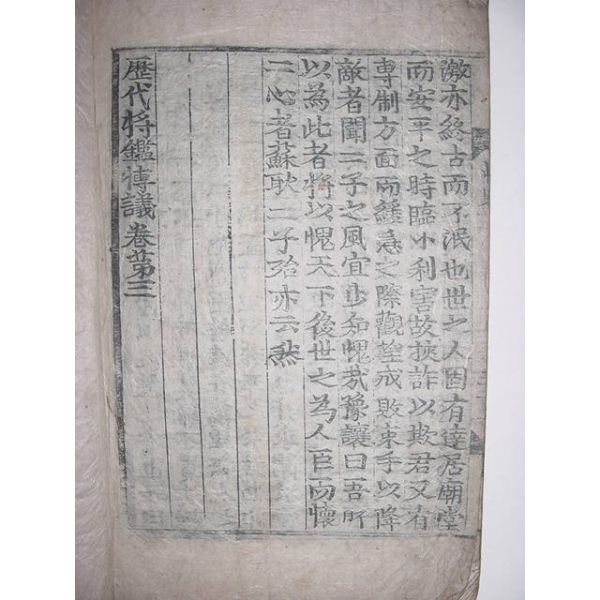 激亦終古而不泯也世之人固有達居廟堂
而安平之時臨小利害故挾詐以欺君又有
專制方面而緩急之際觀望成敗束手以降
敵者聞二子之風宜少知愧哉豫讓曰吾所
以為此者將以愧天下後世之為人臣而懷
二心者蘇耿二子殆亦云然
歷代將鑑博議卷苐三